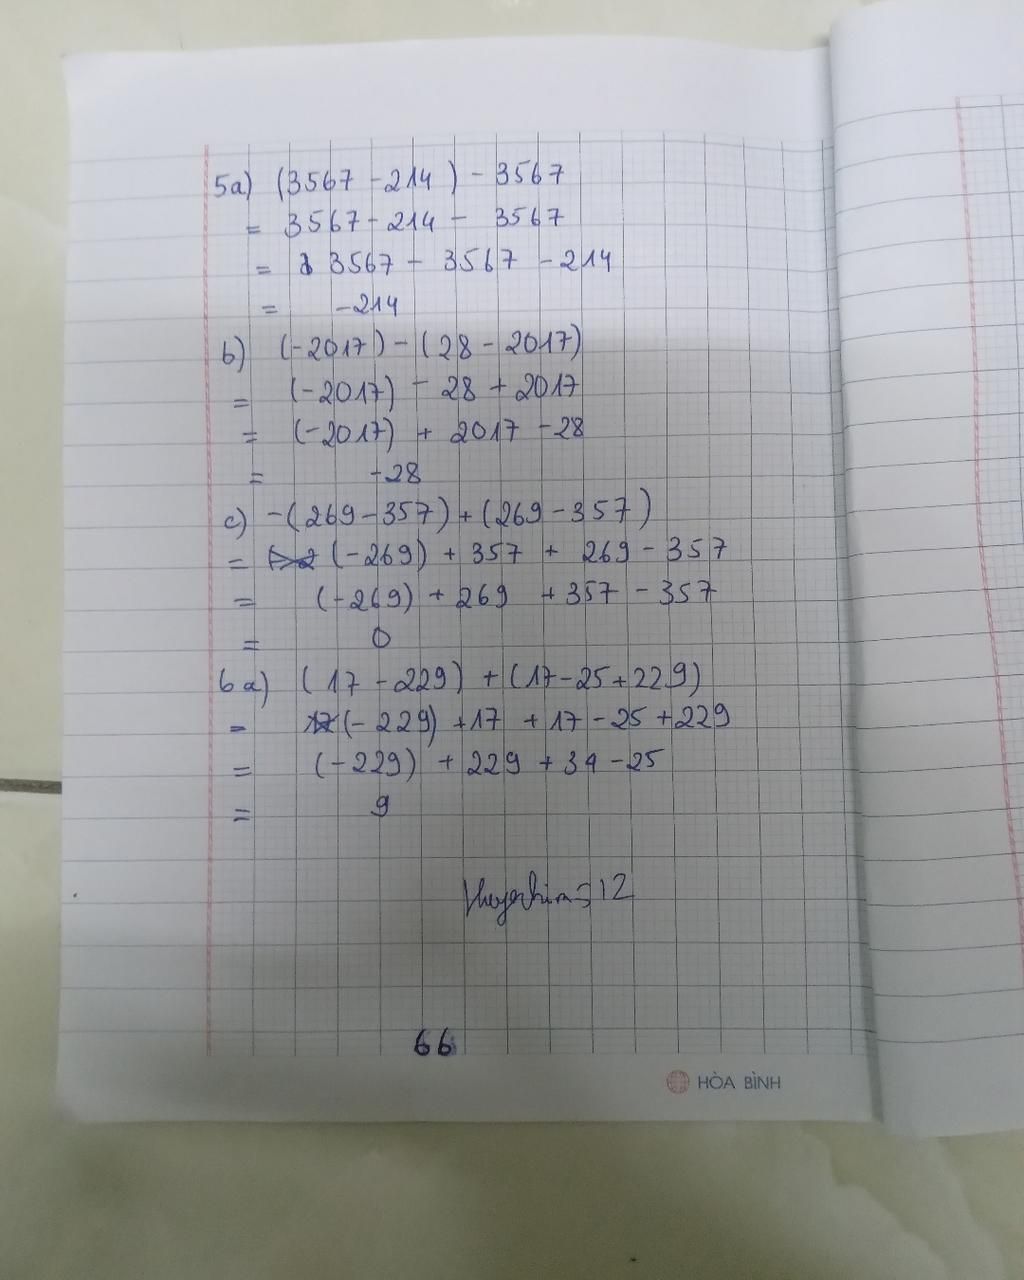 5a) (3567 - 214) - 3567
= 3567 - 214 - 3567
= 3567 - 3567 - 214
= -214
b) (-2017) - (28 - 2017)
= (-2017) - 28 + 2017
= (-2017) + 2017 - 28
= -28
c) -(269 - 357) + (269 - 357)
= (-269) + 357 + 269 - 357
= (-269) + 269 + 357 - 357
= 0
6a) (17 - 229) + (17 - 25 + 229)
= (-229) + 17 + 17 - 25 + 229
= (-229) + 229 + 34 - 25
= 9
312
66
HÒA BÌNH